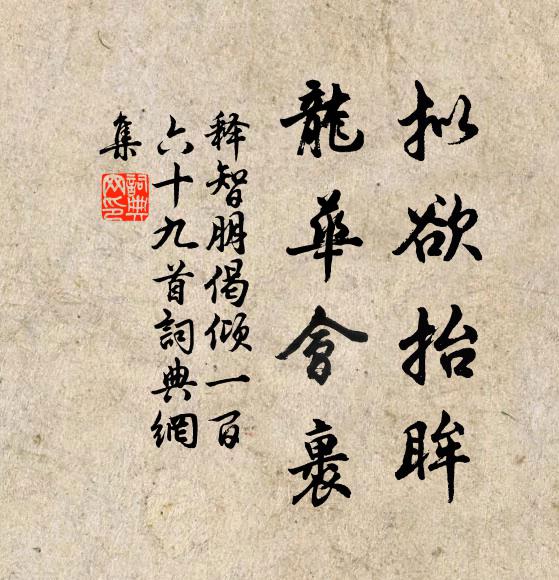 拟欲抬眸
龍華會裏
释智朋偈倾一百
六十九首詞典網
集
詞典網印